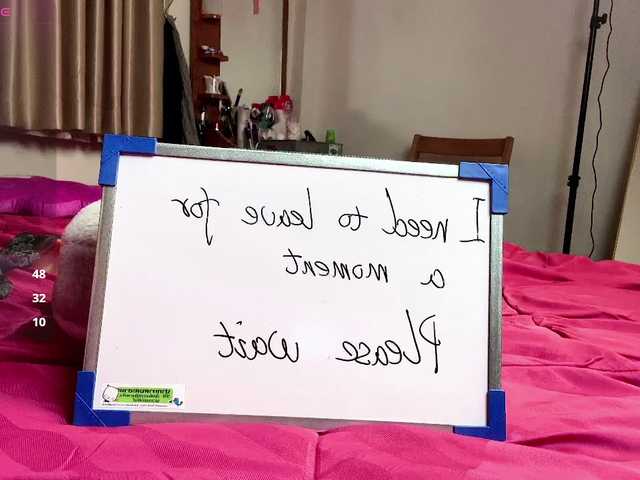 I need to leave for
a moment
Please wait
48
32
10